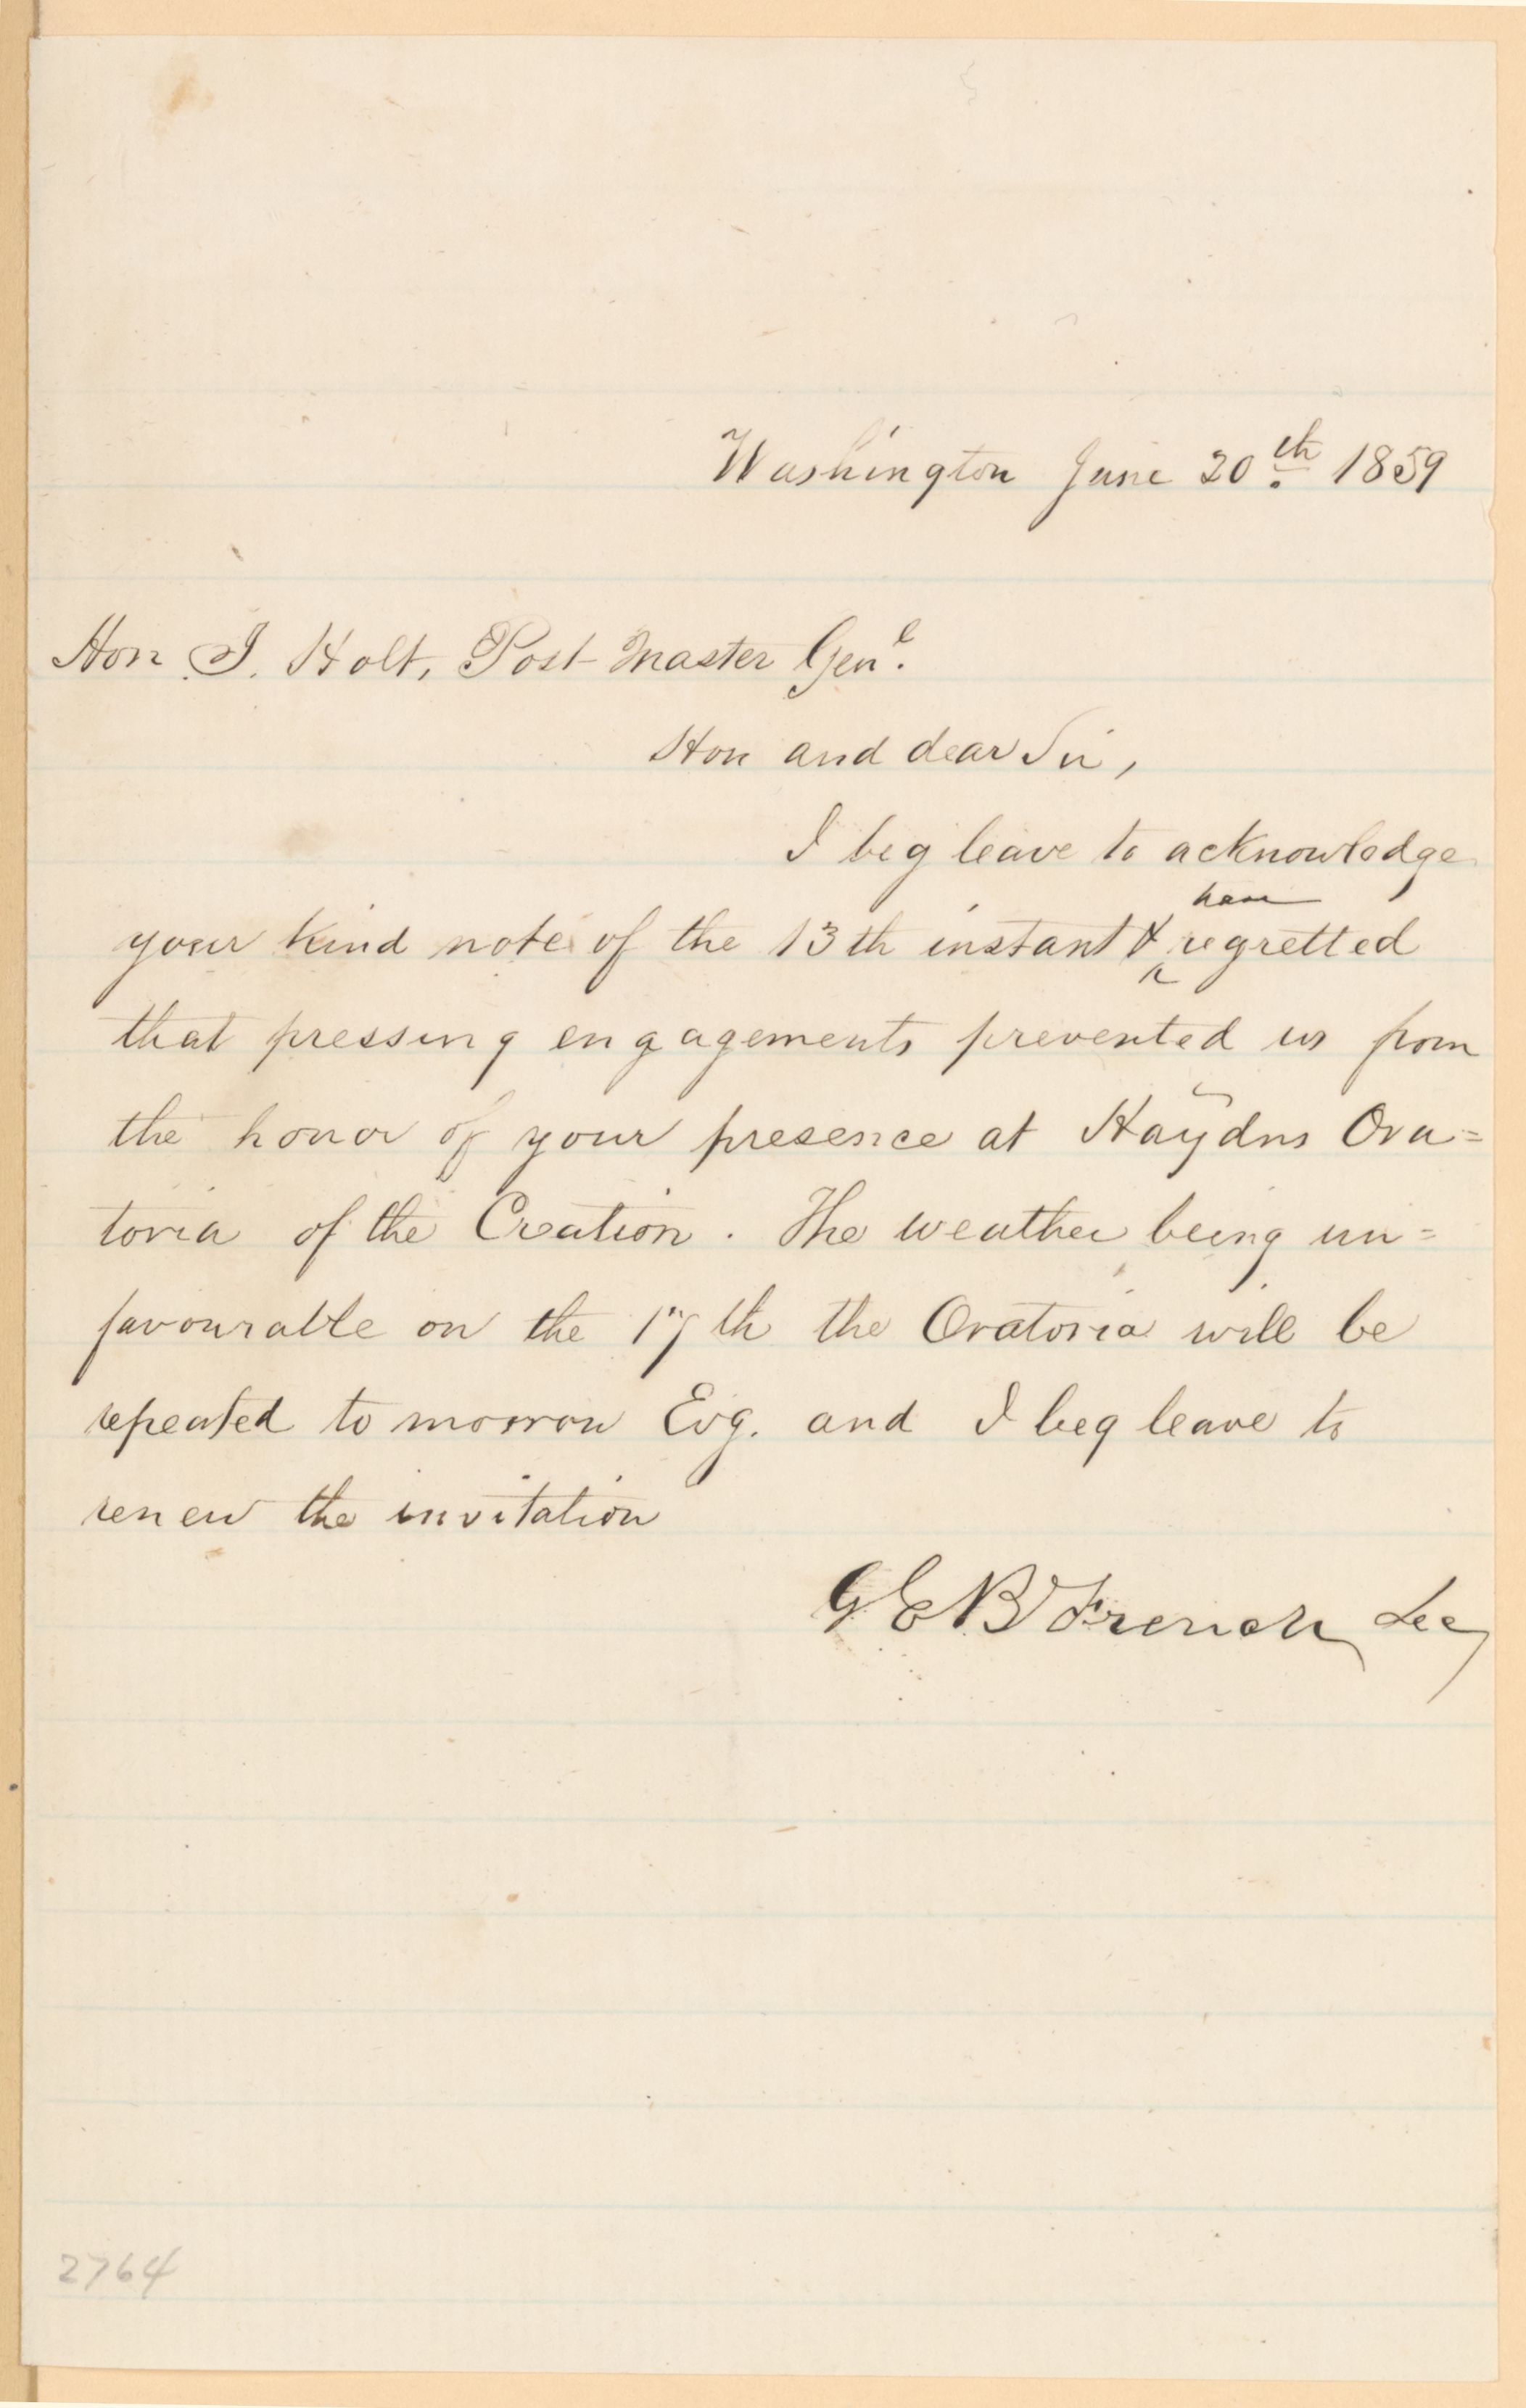 Washington June 20th 1859
Hon J. Holt, Post Master Genl.
Hon and dear Sir,
I beg leave to acknowledge
have
your kind note of the 13th instant & regretted
that pressing engagements prevented us from
the honor of your presence at Haÿdns Ora=
toria of the Creation. The weather being un=
favourable on the 17th the Oratoria will be
repeated to morrow Evg. and I beg leave to
renew the invitation
G E B French Sec
2764